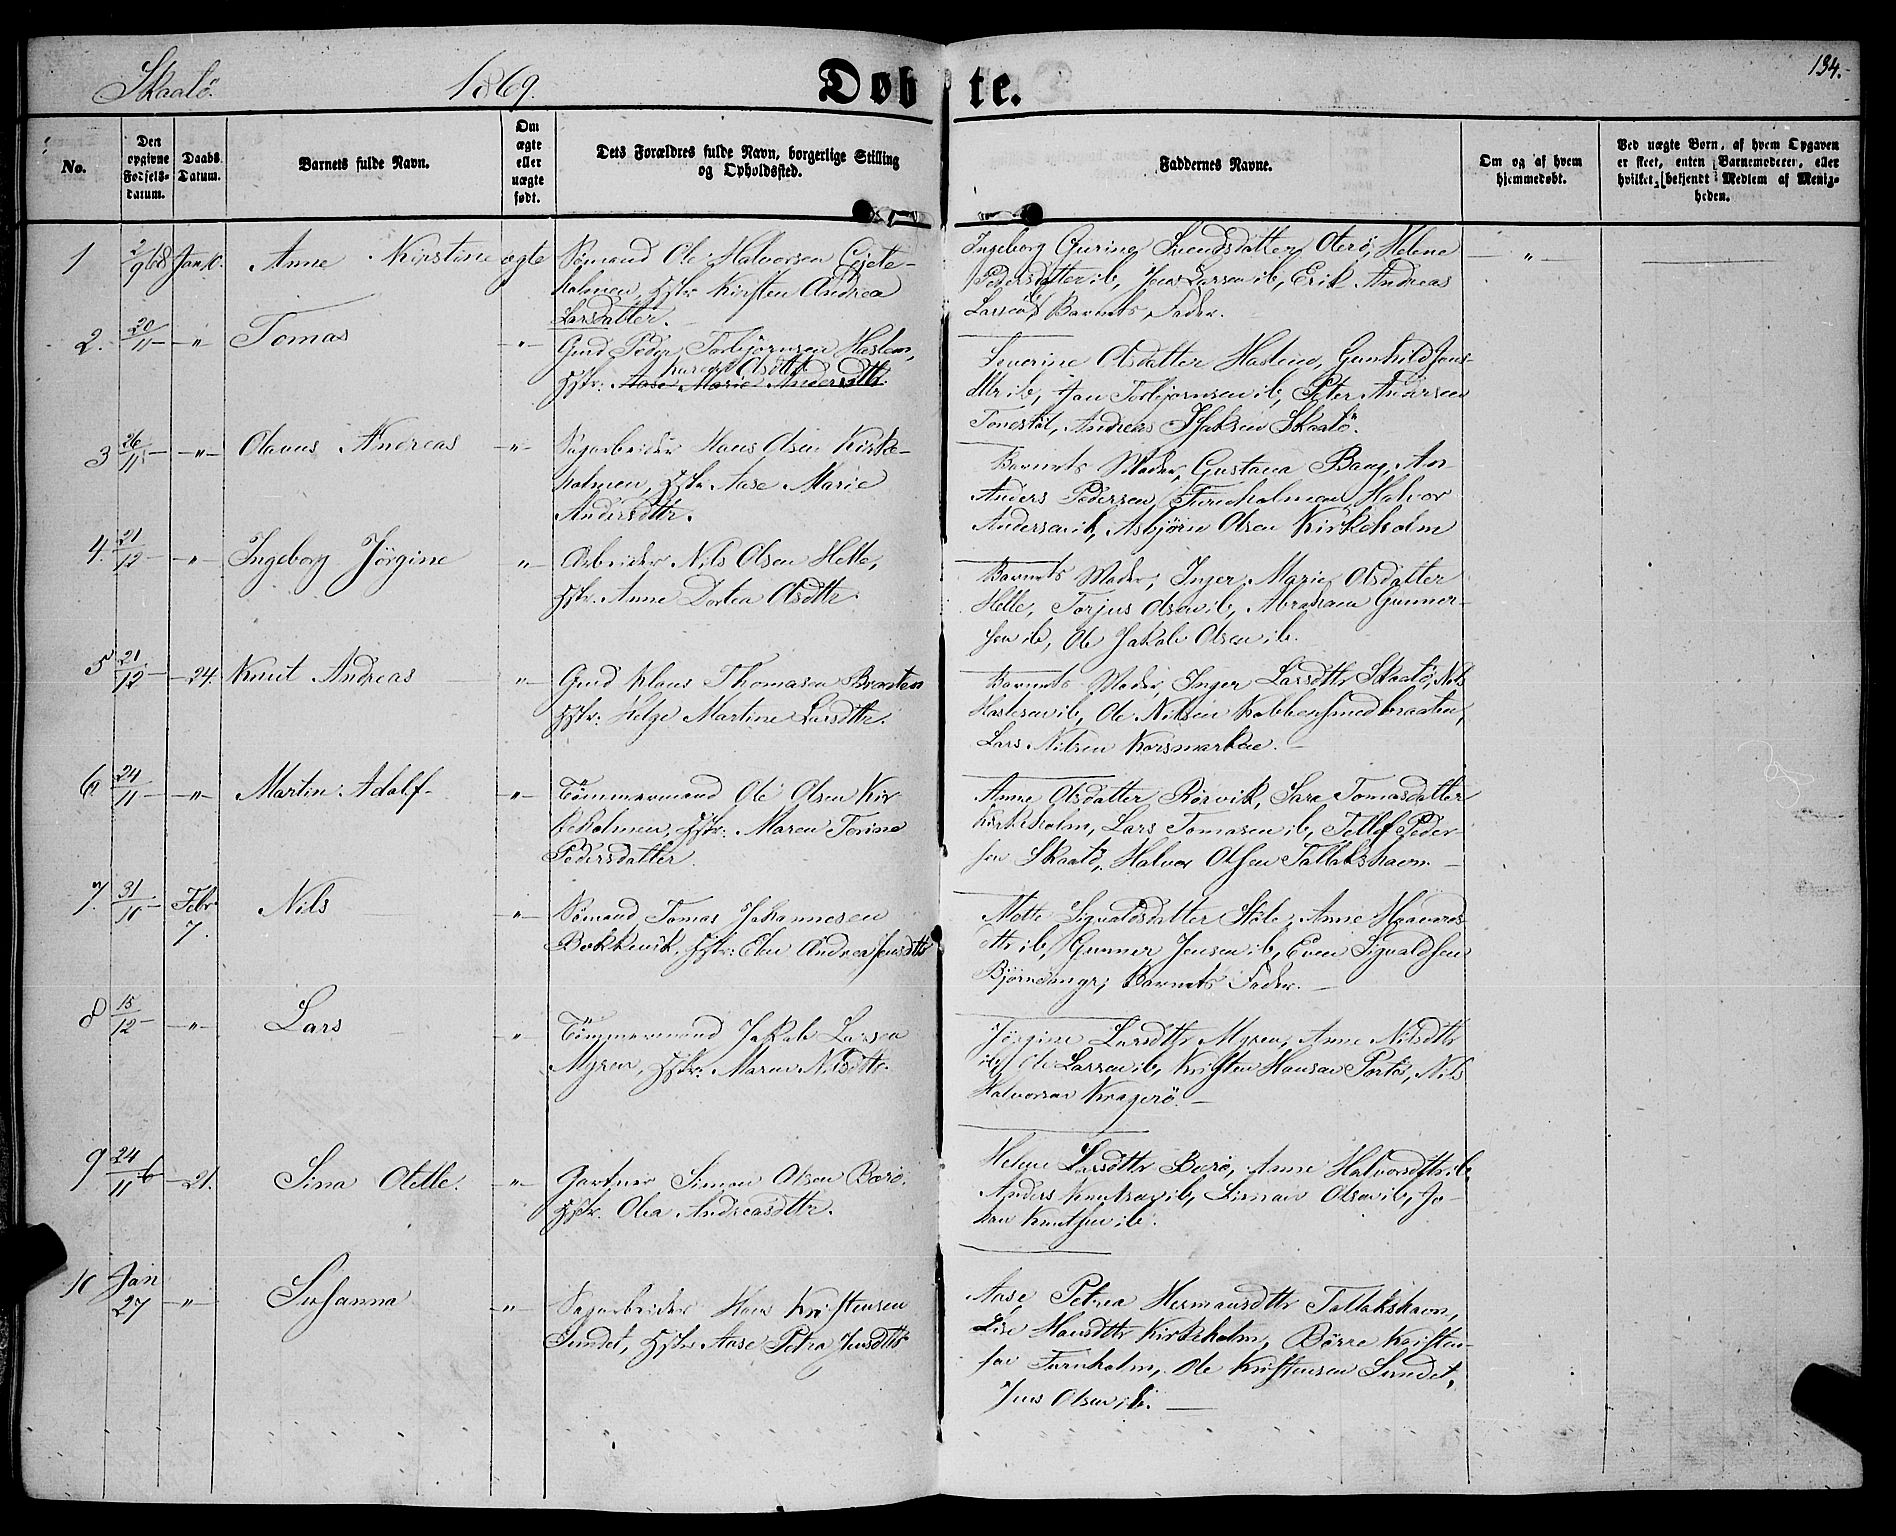 Skaalö.
1869.
Døbte.
134.
No.
Den opgivne Fødsels-datum.
Daabs Datum.
Barnets fulde Navn.
Om ægte eller uægte født.
Dets Forældres fulde Navn, borgerlige Stilling og Opholdssted.
Faddernes Navne.
Om og af hvem hjemmedøbt.
Ved uægte Børn, af hvem Opgaven er skeet, enten Barnemoderen, eller hvilket bekjendt Medlem af Menigheden.
1 2/9 68 Jan 10. Anne Kirstine ægte
Sømand Ole Halvorsen Gjete-
holmen, Hstr: Kirsten Andrea
Larsdatter.
Ingeborg Guring Svendsdatter Oterö, Helene
Pedersdatter ib, Jens Larsen ib, Erik Andreas
Larsen ib, Barnets Fader.
— " —
2. 20/11 — " — Tomas — " —
Gmd Peder Torbjörnsen Haslem,
Karen Olsdttr
Hstr: Aase Marie Andersdttr.
Severine Olsdatter Haslem, Gunhild Jens-
dttr ib, Jan Torbjörnsen ib, Peter Andersen
Tonestöl, Andreas Isaksen Skaalö.
3 26/11 — " — Olavus Andreas — " —
Sagarbeider Hans Olsen Kirke-
holmen, Hstr Aase Marie
Andersdttr.
Barnets Moder, Gustava Bang,
Anders Pedersen Furuholmen, Halvor
Andersen ib, Asbjörn Olsen Kirkeholm
4. 21/12 — " — Ingeborg Jörgine — " —
Arbeider Nils Olsen Helle,
Hstr: Anne Dortea Olsdttr.
Barnets Moder, Inger Marie Olsdatter
Helle, Torjus Olsen ib, Abraham Gunner-
sen ib, Ole Jakob Olsen ib.
5 21/12 — 24. Knut Andreas — " —
Gmd Klaus Thomasen Braaten
Hstr: Helge Martine Larsdttr.
Barnets Moder, Inger Larsdttr Skaalö, Nils
ib, Ole Nilsen Kobbersmedbraaten,
Lars Nilsen Korsmarken.
6. 24/11 — " — Martin Adolf — " —
Tömmermand Ole Olsen Kir
keholmen, Hstr: Maren Torine
Pedersdatter.
Anne Olsdatter Rörvik, Sara Tomasdatter
Kirkeholm, Lars Tomasen ib, Tellef Peder
sen Skaalö, Halvor Olsen Tallakshavn. —
7. 31/10 Febr 7. Nils — " —
Sömand Tomas Johannesen
Bokkevik. Hstr: Elen Andrea Jensdttr
Mette Sigvaldsdatter Stöle, Anne Haavards
dttr ib, Gunner Jensen ib, Even Sigvaldsen
Björnsunger, Barnets Fader. —
8 15/12 — " — Lars — " —
Tömmermand Jakob Larsen
Myren, Hstr: Maren Nilsdttr.
Jörgine Larsdttr Myren, Anne Nilsdttr
ib, Ole Larsen ib, Kristen Hansen Portör, Nils
Halvorsen Kragerö. —
9 24/11 — 21. Sina Otelle. — " —
Gartner Simon Olsen Berö.
Hstr. Olea Andreasdttr.
Helene Larsdttr Berö, Anne Halvorsdttr ib,
Anders Knutsen ib, Simon Olsen ib, Jo-
han Knutsen ib.
10 Jan 27 — " — Susanna — " —
Sagarbeider Hans Kristensen
Sundet, Hstr Aase Petra Jensdttr
Aase Petrea Hermansdttr Tallakshavn,
Lise Hansdttr Kirkeholm, Börre Kristen-
sen Furuholm, Ole Kristensen Sundet,
Jens Olsen ib. —